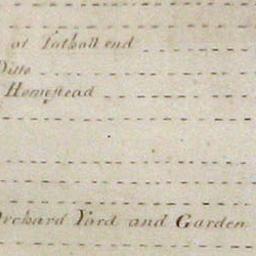 at Tathall end
Ditto
Homestead
Orchard Yard and Garden